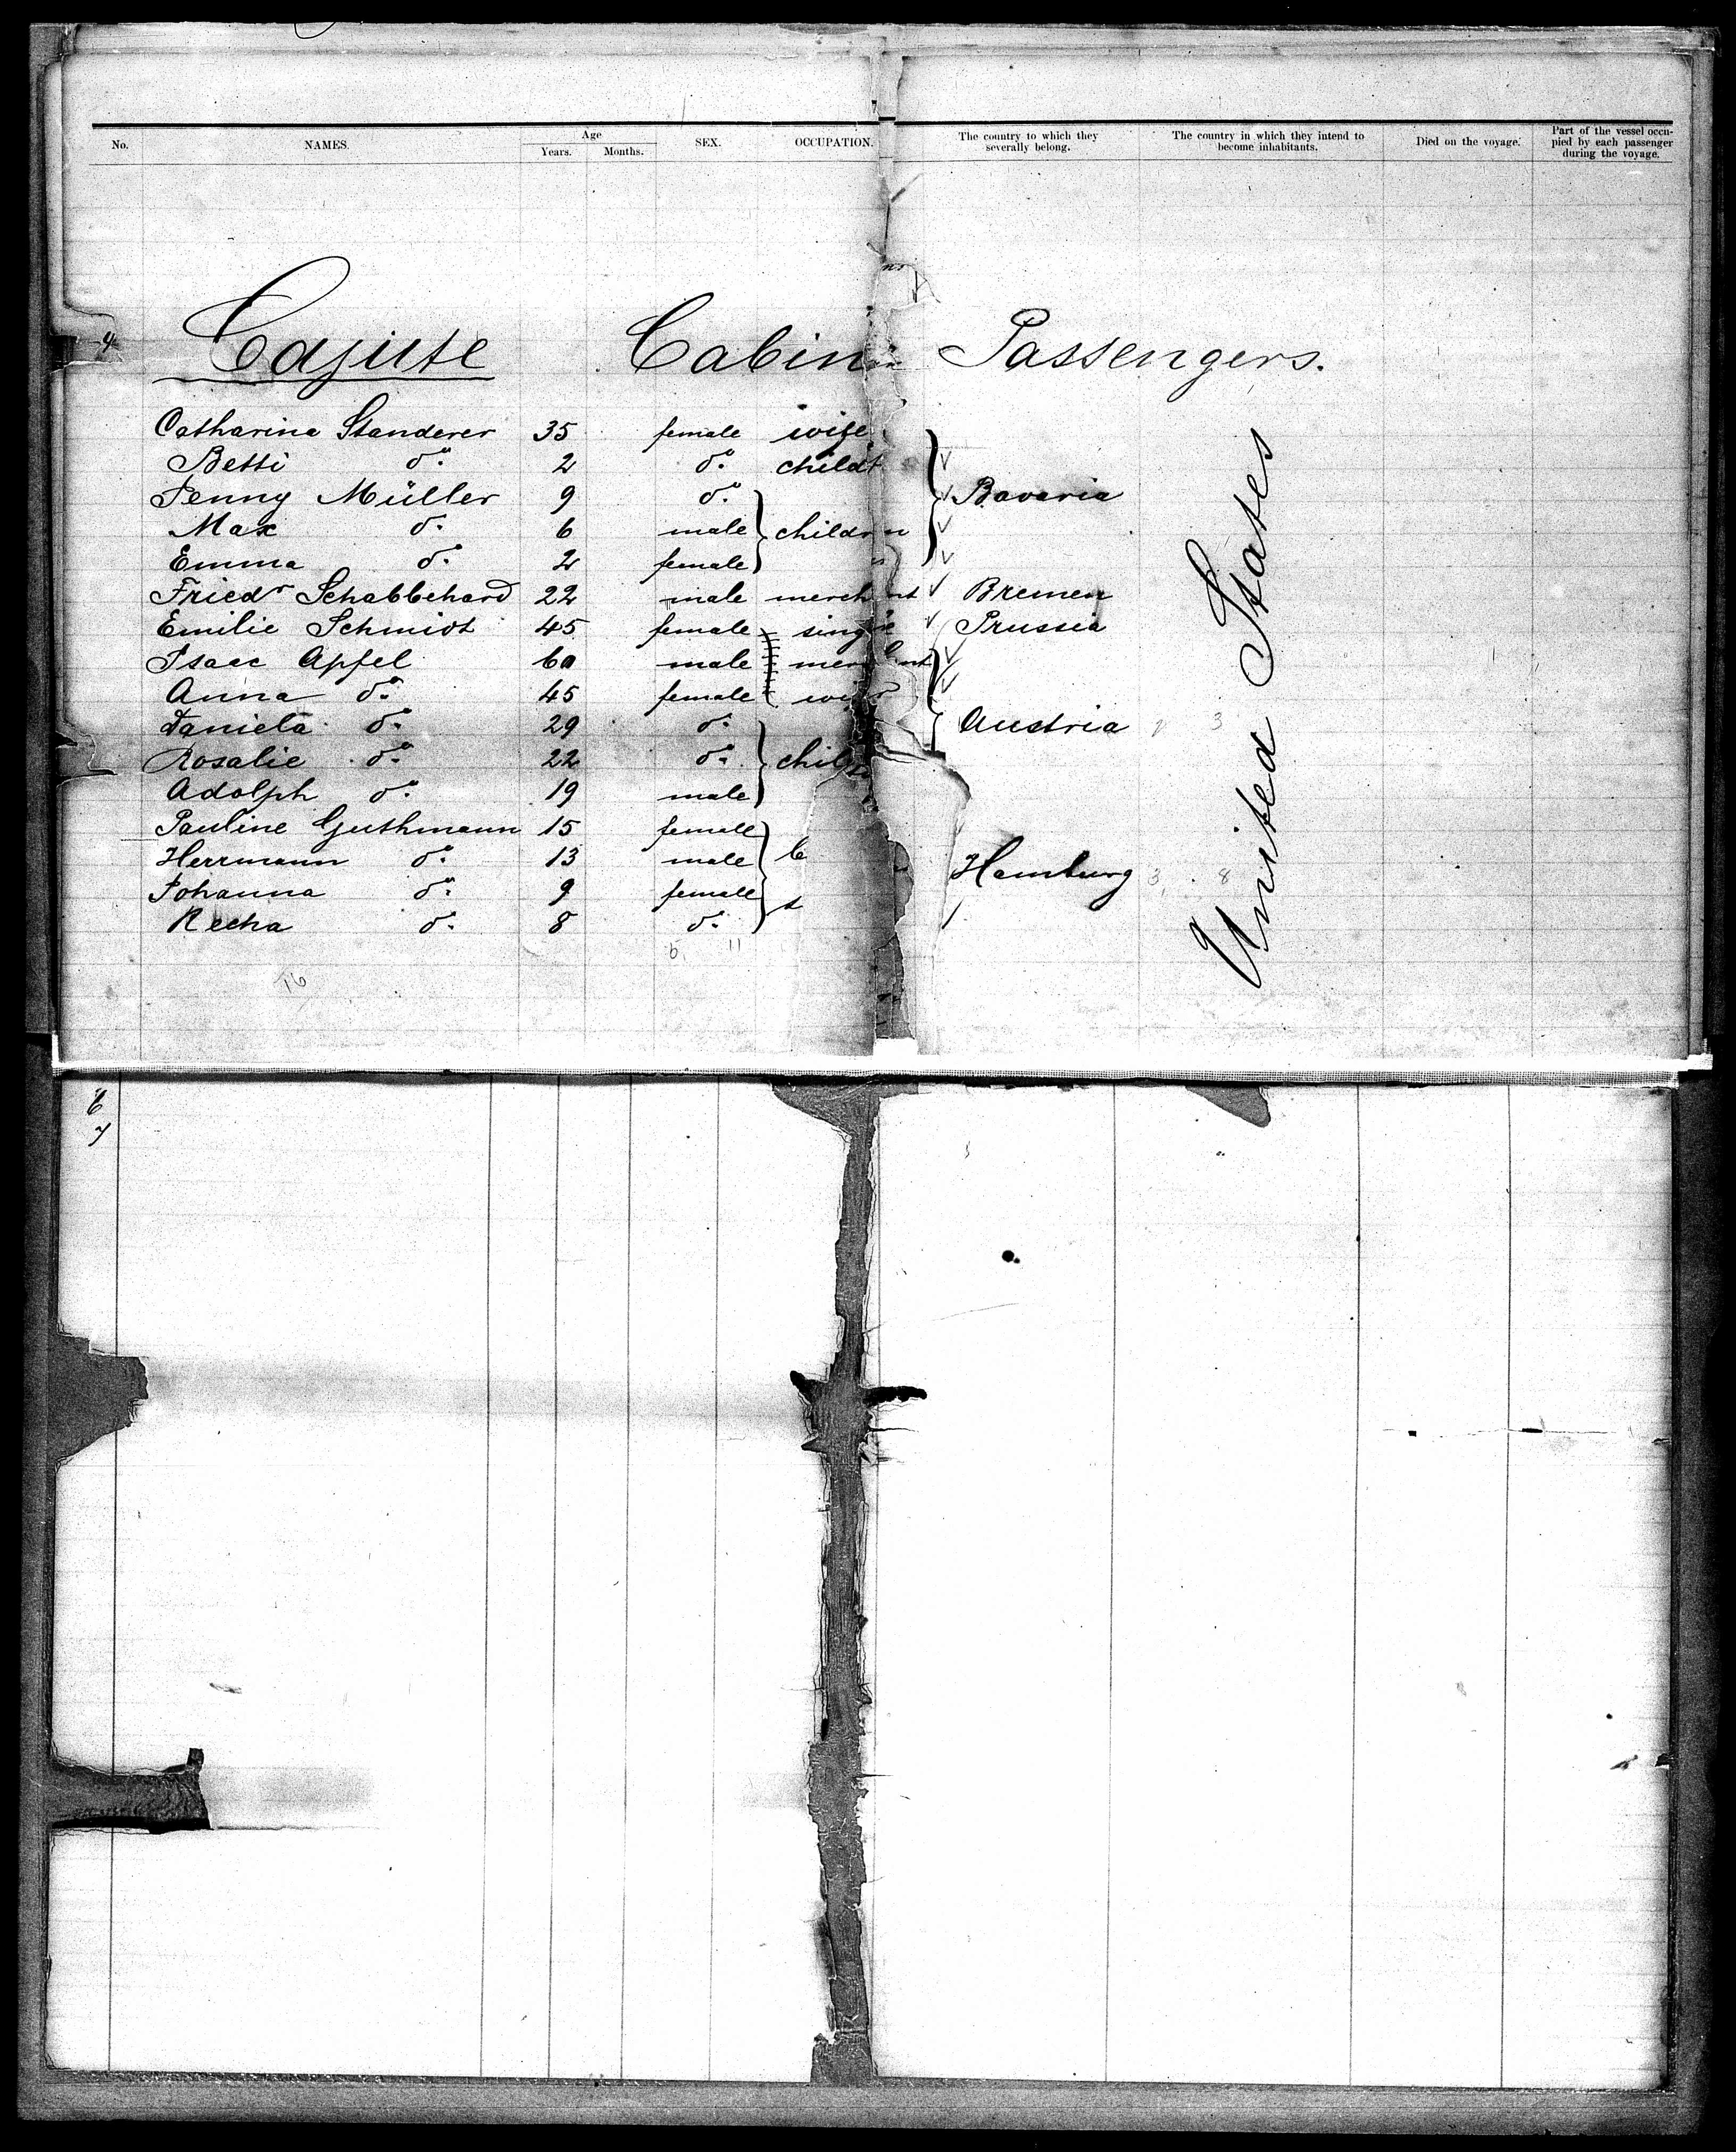 No. NAMES. Age Years. Months. SEX. OCCUPATION. The country to which they severally belong. The country in which they intend to become inhabitants. Died on the voyage. Part of the vessel occupied by each passenger during the voyage.
4
Cajüte Cabin Passengers.
Catharina Standerer 35 female wife
Betti do. 2 do. child
Jenny Müller 9 do. Bavaria
Max do. 6 male children
Emma do. 2 female
Friedr Schabbehard 22 male merchant Bremen
Emilie Schmidt 45 female single Prussia
Isaac Apfel 60 male merchant
Anna do. 45 female wife
Daniela do. 29 do. Austria 2 3
Rosalie do. 22 do. child
Adolph do. 19 male
Pauline Guthmann 15 female
Herrmann do. 13 male Hamburg 3 8
Johanna do. 9 female
Recha do. 8 do.
5 11
16
United States
6
7